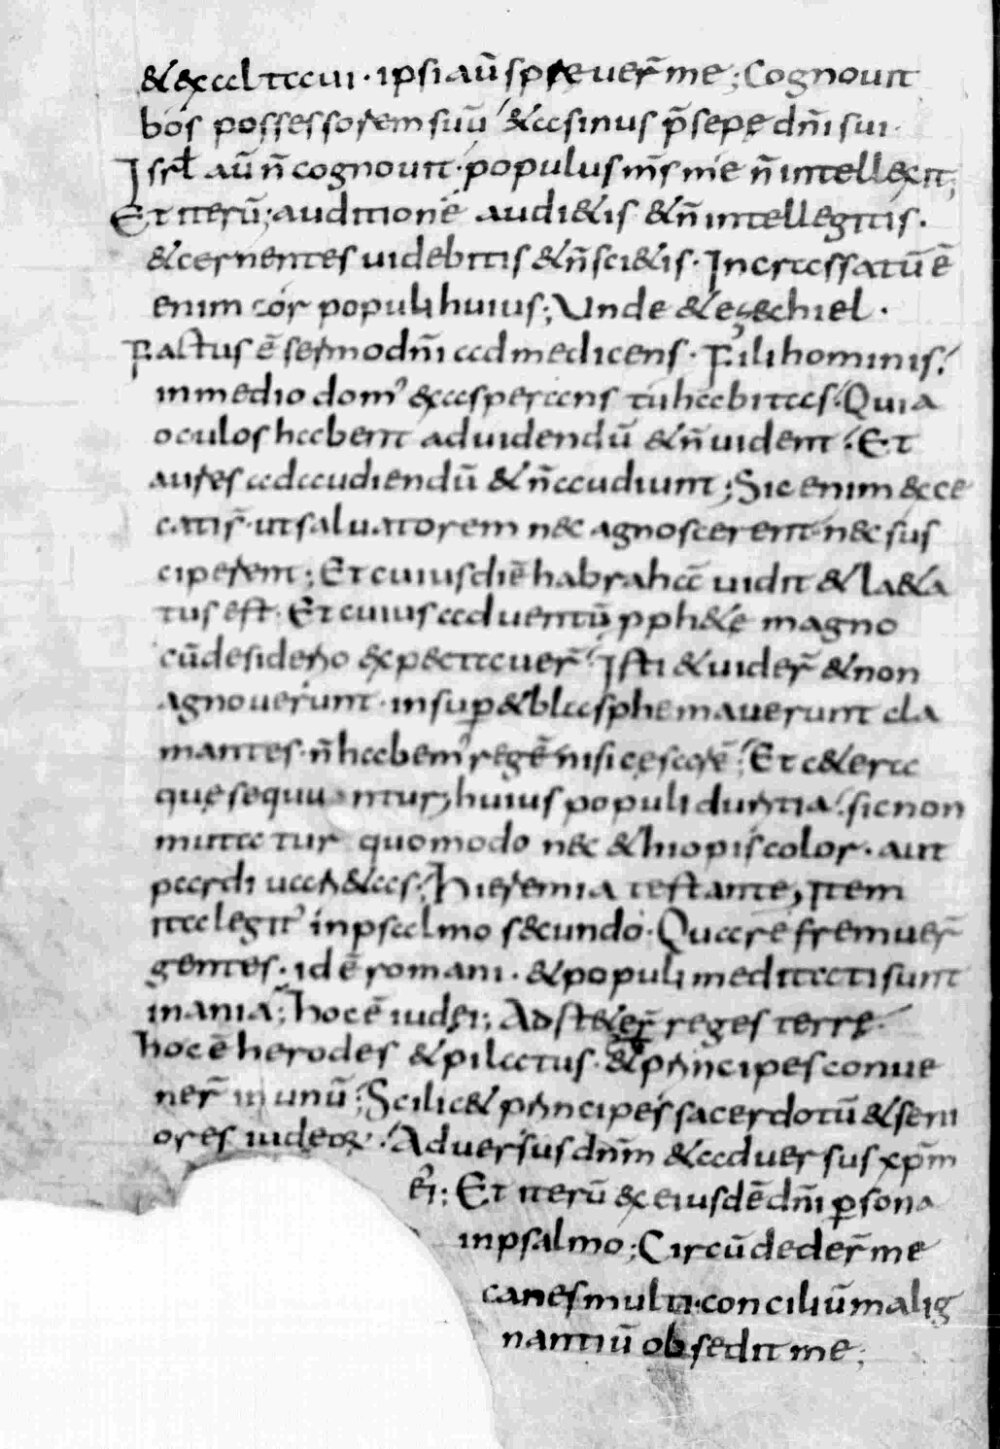 & exaltaui · ipsi aū spreuer̄ me ; Cognouit
bos possessorem suū & asinus p̄sepę dn̄i sui ·
Isrl aū n̄ cognouit · populus m̄s me n̄ intellexit ;
Et iterū ; auditione audi&is & n̄ intellegitis ·
& cernentes uidebitis & n̄ sci&is · Incrassatū ē
enim cor populi huius ; Unde & ezechiel ·
Factus ē sermo dn̄i ad me dicens · Fili hominis
in medio dom' exasperans tu habitas · Quia
oculos habent ad uidendū & n̄ uident · Et
aures ad audiendū & n̄ audiunt ; Sic enim exce
cati sr̄ · ut saluatorem nec agnoscerent · nec sus
ciperent ; Et cuius diē habrahā uidit & la&a
tus est · Et cuius aduentū pph&ę magno
cū desiderio expectauer̄ · Isti & uider̄ & non
agnouerunt · insup̱ & blasphemauerunt cla
mantes · n̄ habem' regē nisi cęsarē ; Et c&era
quę sequuntur ; huius populi duritia · sic non
mutatur quomodo nec &hiopis color · aut
pardi uari&as ; Hieremia testante , Item
ita legit' in psalmo secundo · Quare fremuer̄
gentes · id ē romani · & populi meditati sunt
inania ; hoc ē iudęi ; Adst&er̄ reges terrę
hoc ē herodes & pilatus · & principes conue
ner̄ in unū ; Scilic& principes sacerdotū & seni
ores iudeoꝝ · Aduersus dn̄m & aduersus xp̄m
ei' : Et iterū ex eiusdē dn̄i p̱sona
in psalmo ; Circūdeder̄ me
canes multi · conciliū malig
nantiū obsedit me ;